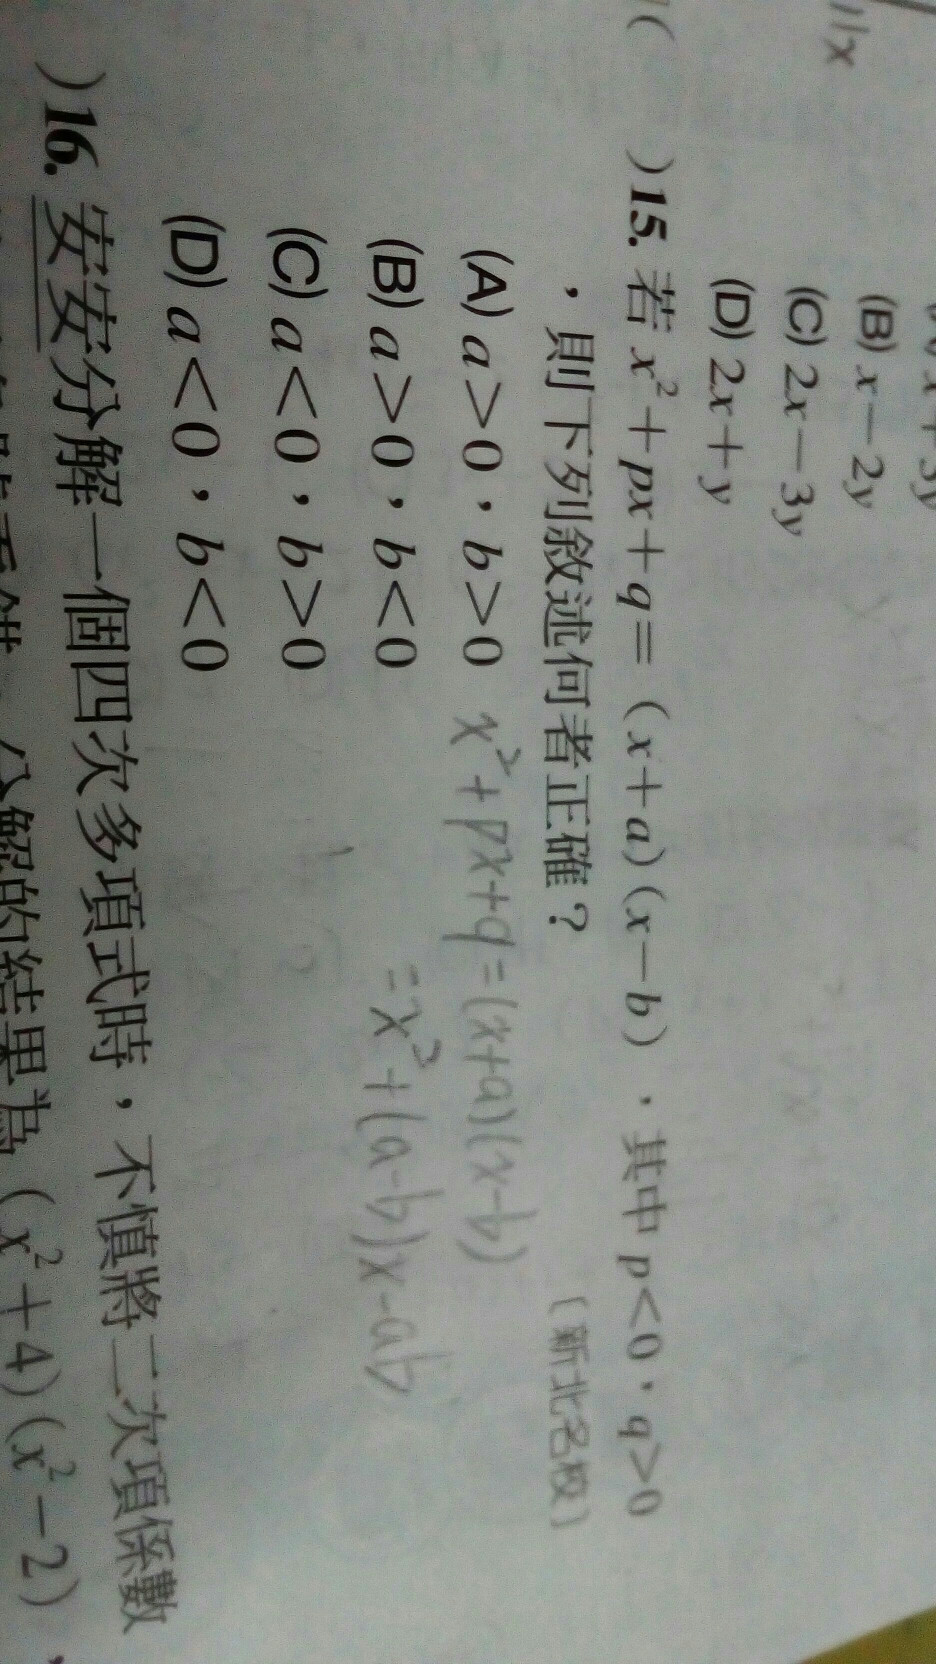 11x
(B) x－2y
(C) 2x－3y
(D) 2x＋y
)15. 若 x²＋px＋q＝(x＋a)(x－b)，其中 p＜0，q＞0
，則下列敘述何者正確？〔新北名校〕
(A) a＞0，b＞0
x²+px+q=(x+a)(x-b)
(B) a＞0，b＜0
=x²+(a-b)x-ab
(C) a＜0，b＞0
(D) a＜0，b＜0
)16. 安安分解一個四次多項式時，不慎將二次項係數
分解的結果為(x²＋4)(x²－2)，